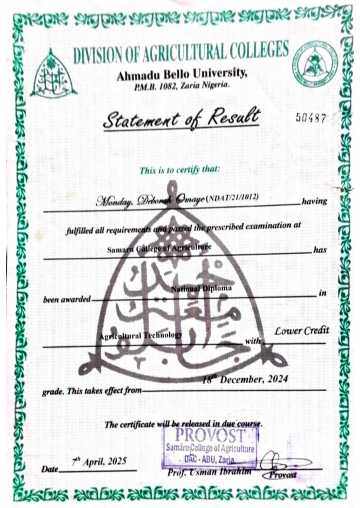 DIVISION OF AGRICULTURAL COLLEGES
Ahmadu Bello University,
P.M.B. 1082, Zaria Nigeria.
Statement of Result
50487
This is to certify that:
Monday, Deborah Omaye (NDAT/21/1012) having
fulfilled all requirements and passed the prescribed examination at
Samaru College of Agriculture has
been awarded National Diploma in
Agricultural Technology with Lower Credit
grade. This takes effect from 18th December, 2024
The certificate will be released in due course.
PROVOST
Samaru College of Agriculture
DAC - ABU, Zaria
Date 7th April, 2025
Prof. Usman Ibrahim
Provost